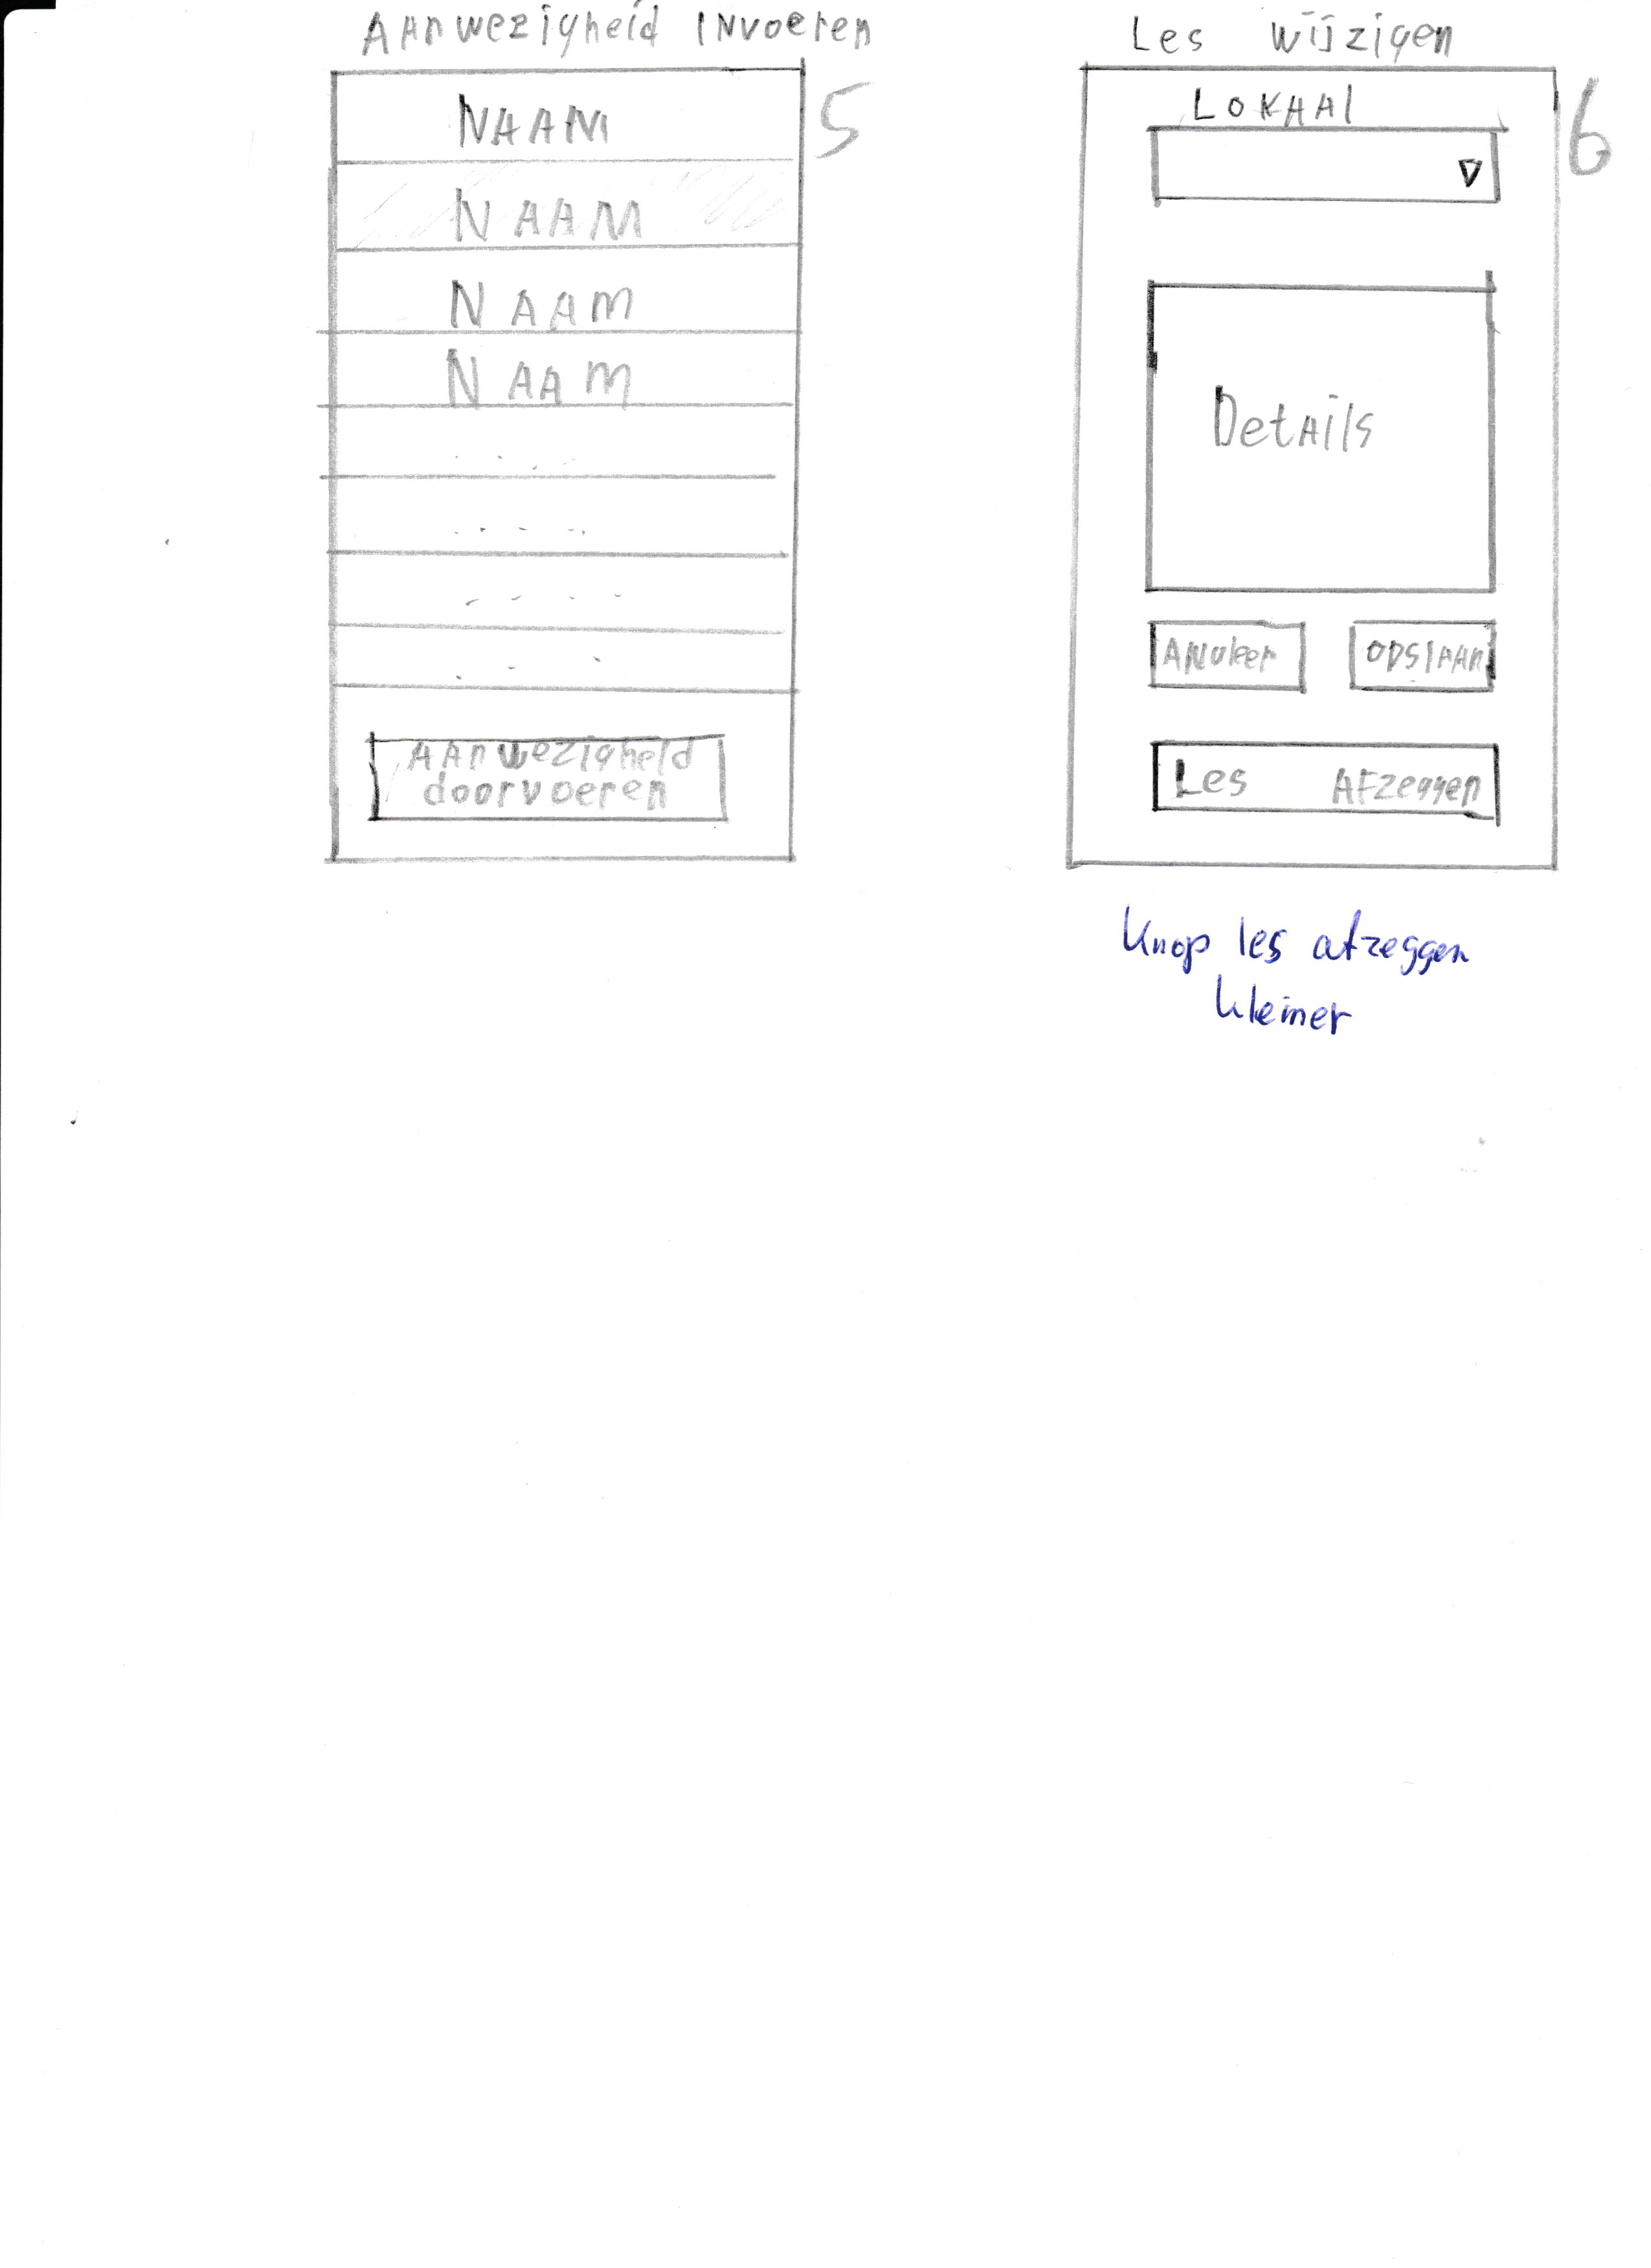 Aanwezigheid invoeren
5
NAAM
NAAM
NAAM
NAAM
Aanwezigheid
doorvoeren
Les wijzigen
6
LOKAAl
Details
ANuleer
OPSlAAn
Les AFzeggen
Knop les afzeggen
kleiner